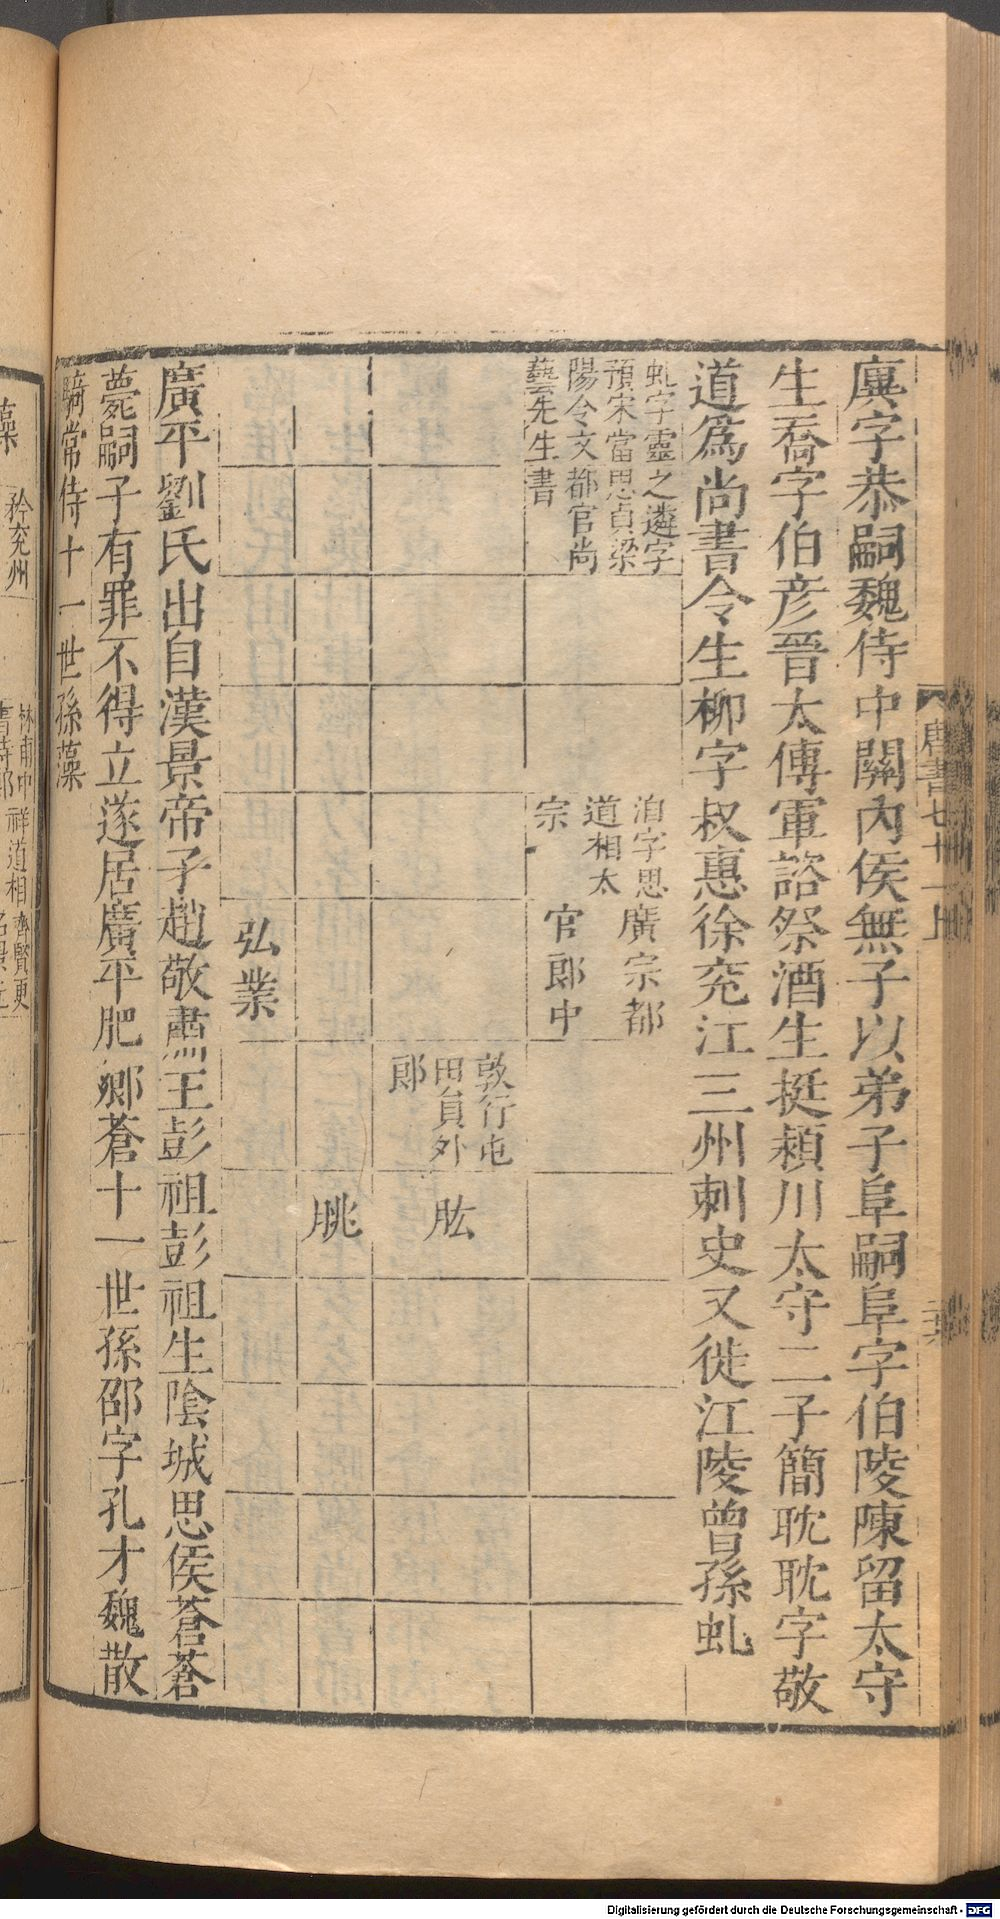 廙字恭嗣魏侍中關內侯無子以弟子阜嗣阜字伯陵陳留太守
生喬字伯彥晉太傅軍諮祭酒生挺潁川太守二子簡耽耽字敬
道爲尚書令生柳字叔惠徐兗江三州刺史又徙江陵曾孫虬
虬字靈之遴字
預宋當思貞梁
陽令文都官尚
藝先生書
洎字思
道相太
宗
廣宗都
官郎中
敦行屯
田員外
郎
肱
朓
弘業
廣平劉氏出自漢景帝子趙敬肅王彭祖彭祖生陰城思侯蒼蒼
薨嗣子有罪不得立遂居廣平肥鄉蒼十一世孫邵字孔才魏散
騎常侍十一世孫藻
唐書七十一上
藻
矜兗州
祥道相
Digitalisierung gefördert durch die Deutsche Forschungsgemeinschaft - DFG